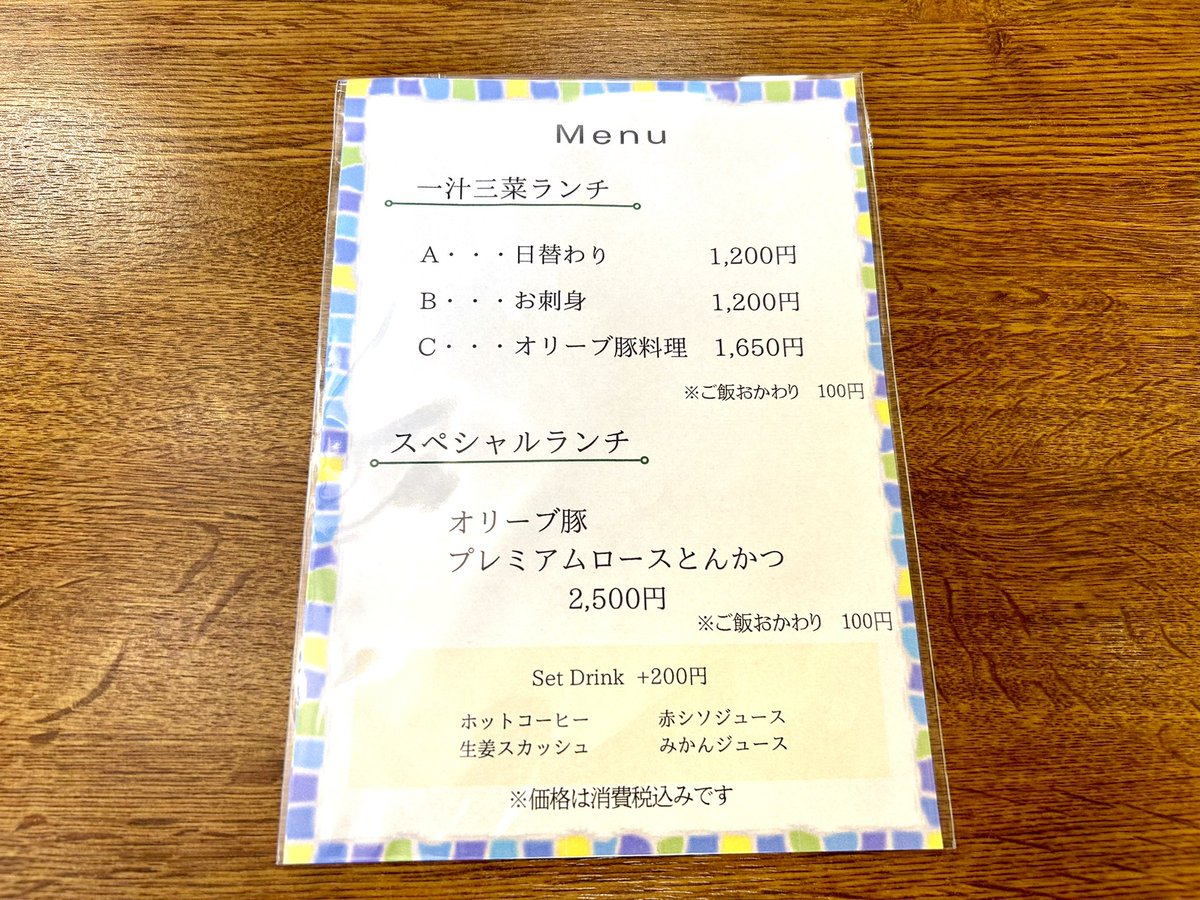 Menu
一汁三菜ランチ
A・・・日替わり 1,200円
B・・・お刺身 1,200円
C・・・オリーブ豚料理 1,650円
※ご飯おかわり 100円
スペシャルランチ
オリーブ豚
プレミアムロースとんかつ
2,500円
※ご飯おかわり 100円
Set Drink +200円
ホットコーヒー 赤シソジュース
生姜スカッシュ みかんジュース
※価格は消費税込みです